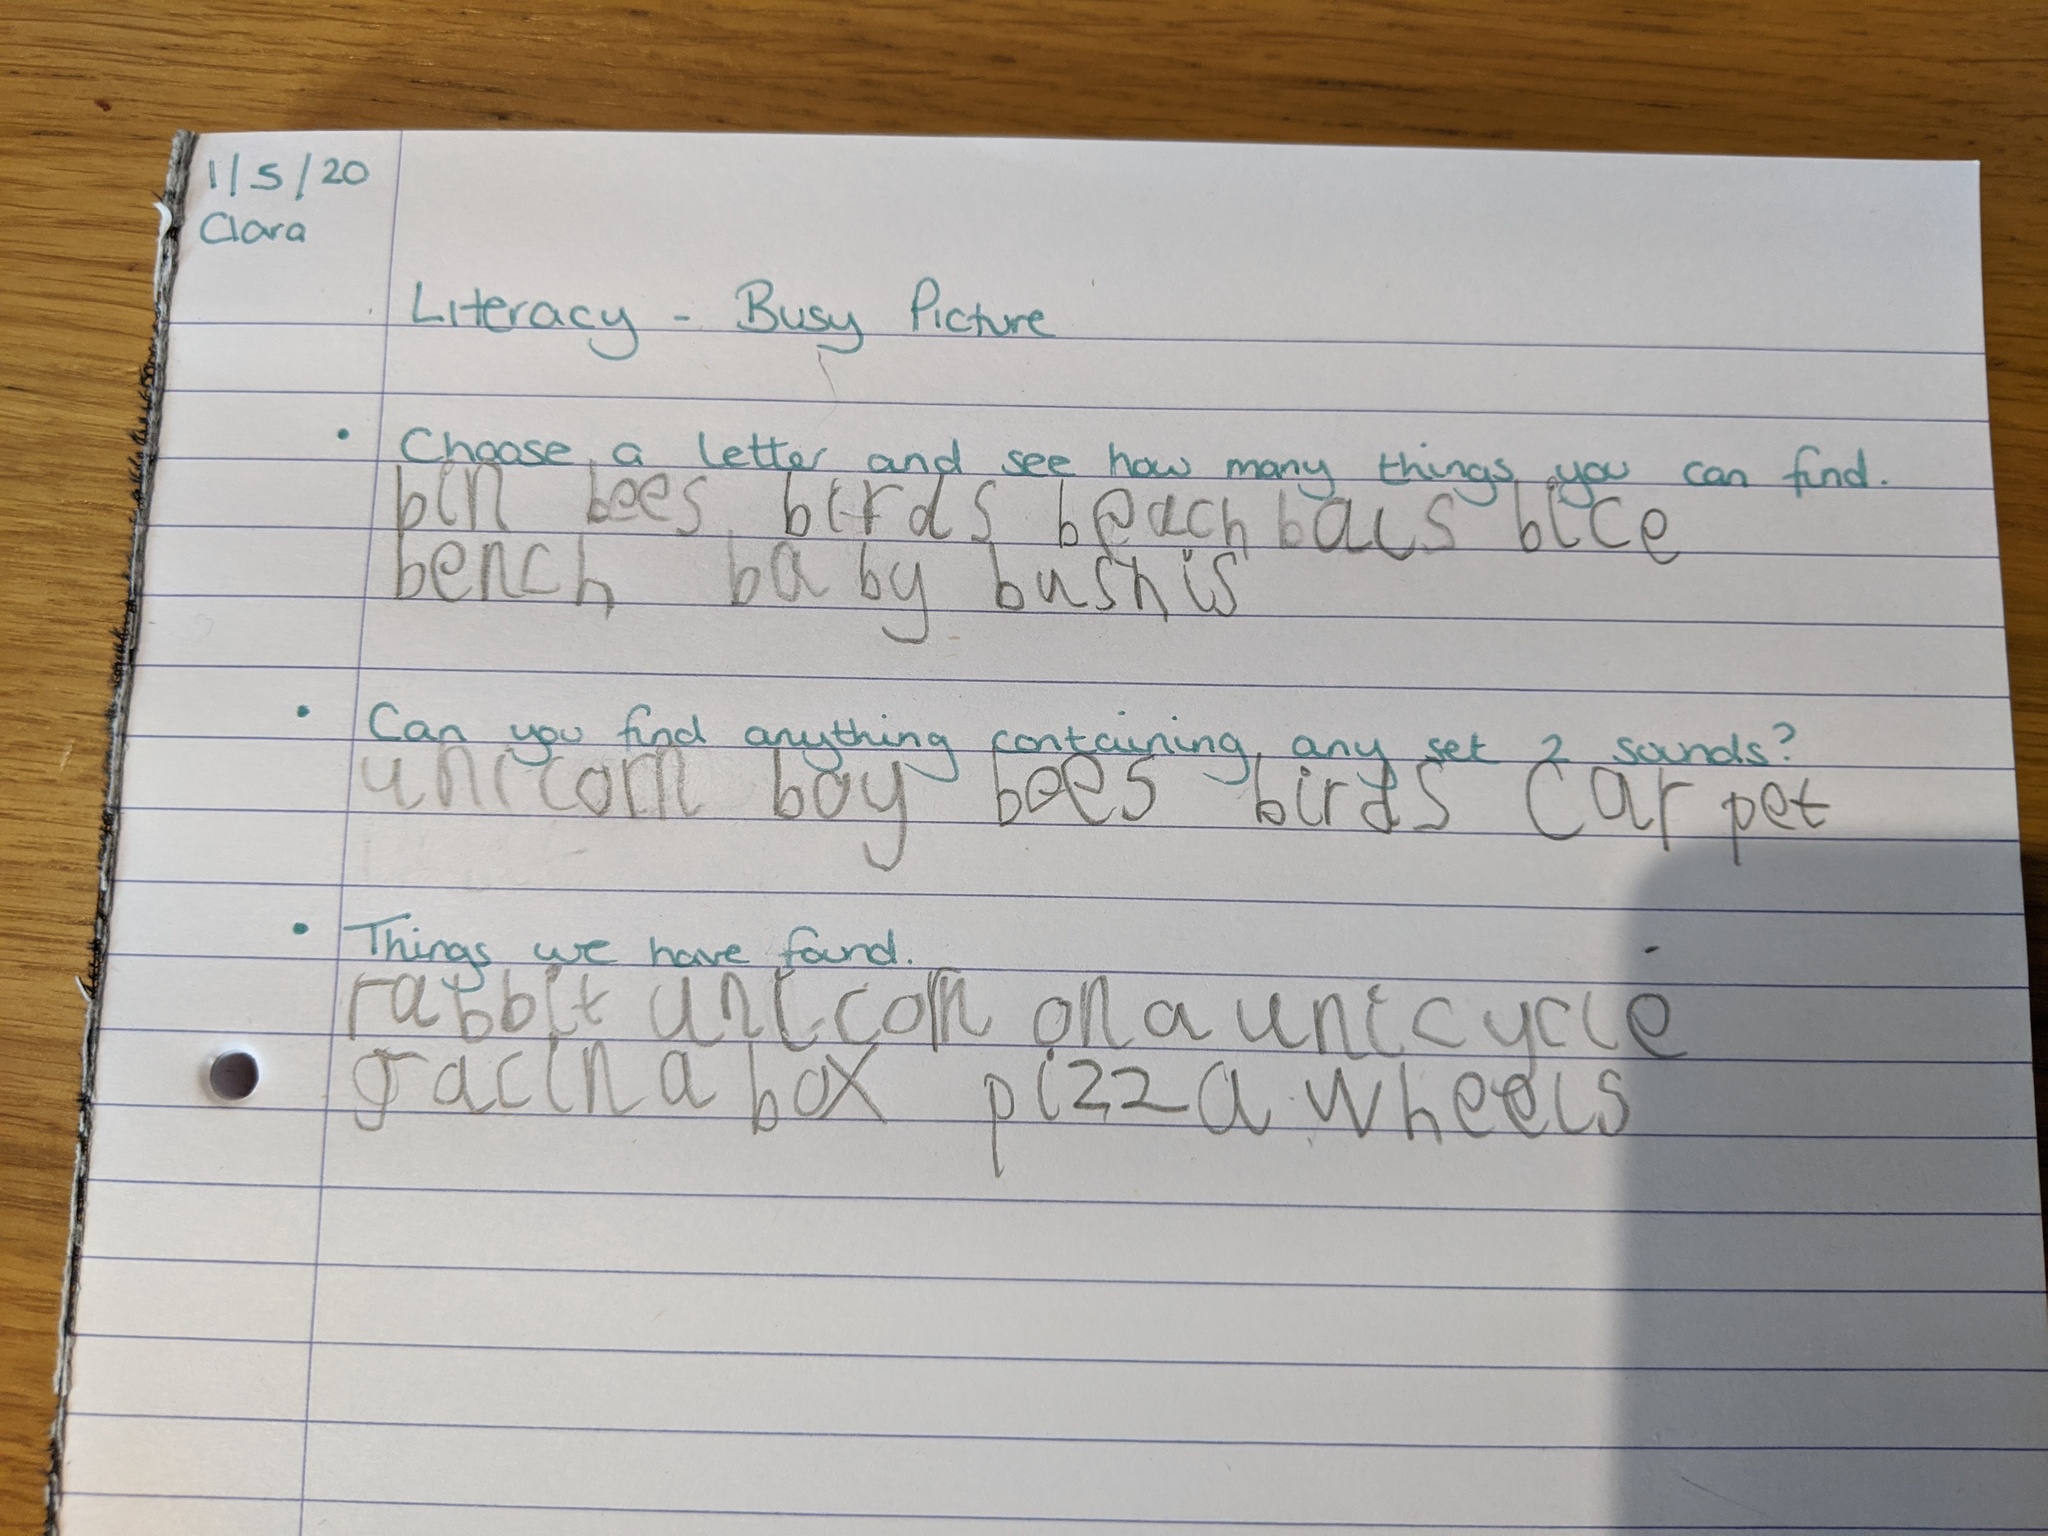 1/5/20
Clara
Literacy - Busy Picture
• Choose a letter and see how many things you can find.
bin bees birds beach bals bice
bench baby bushis
• Can you find anything containing any set 2 sounds?
unicorn boy bees birds carpet
• Things we have found.
rabbit unicorn on a unicycle
gac in a box pizza wheels